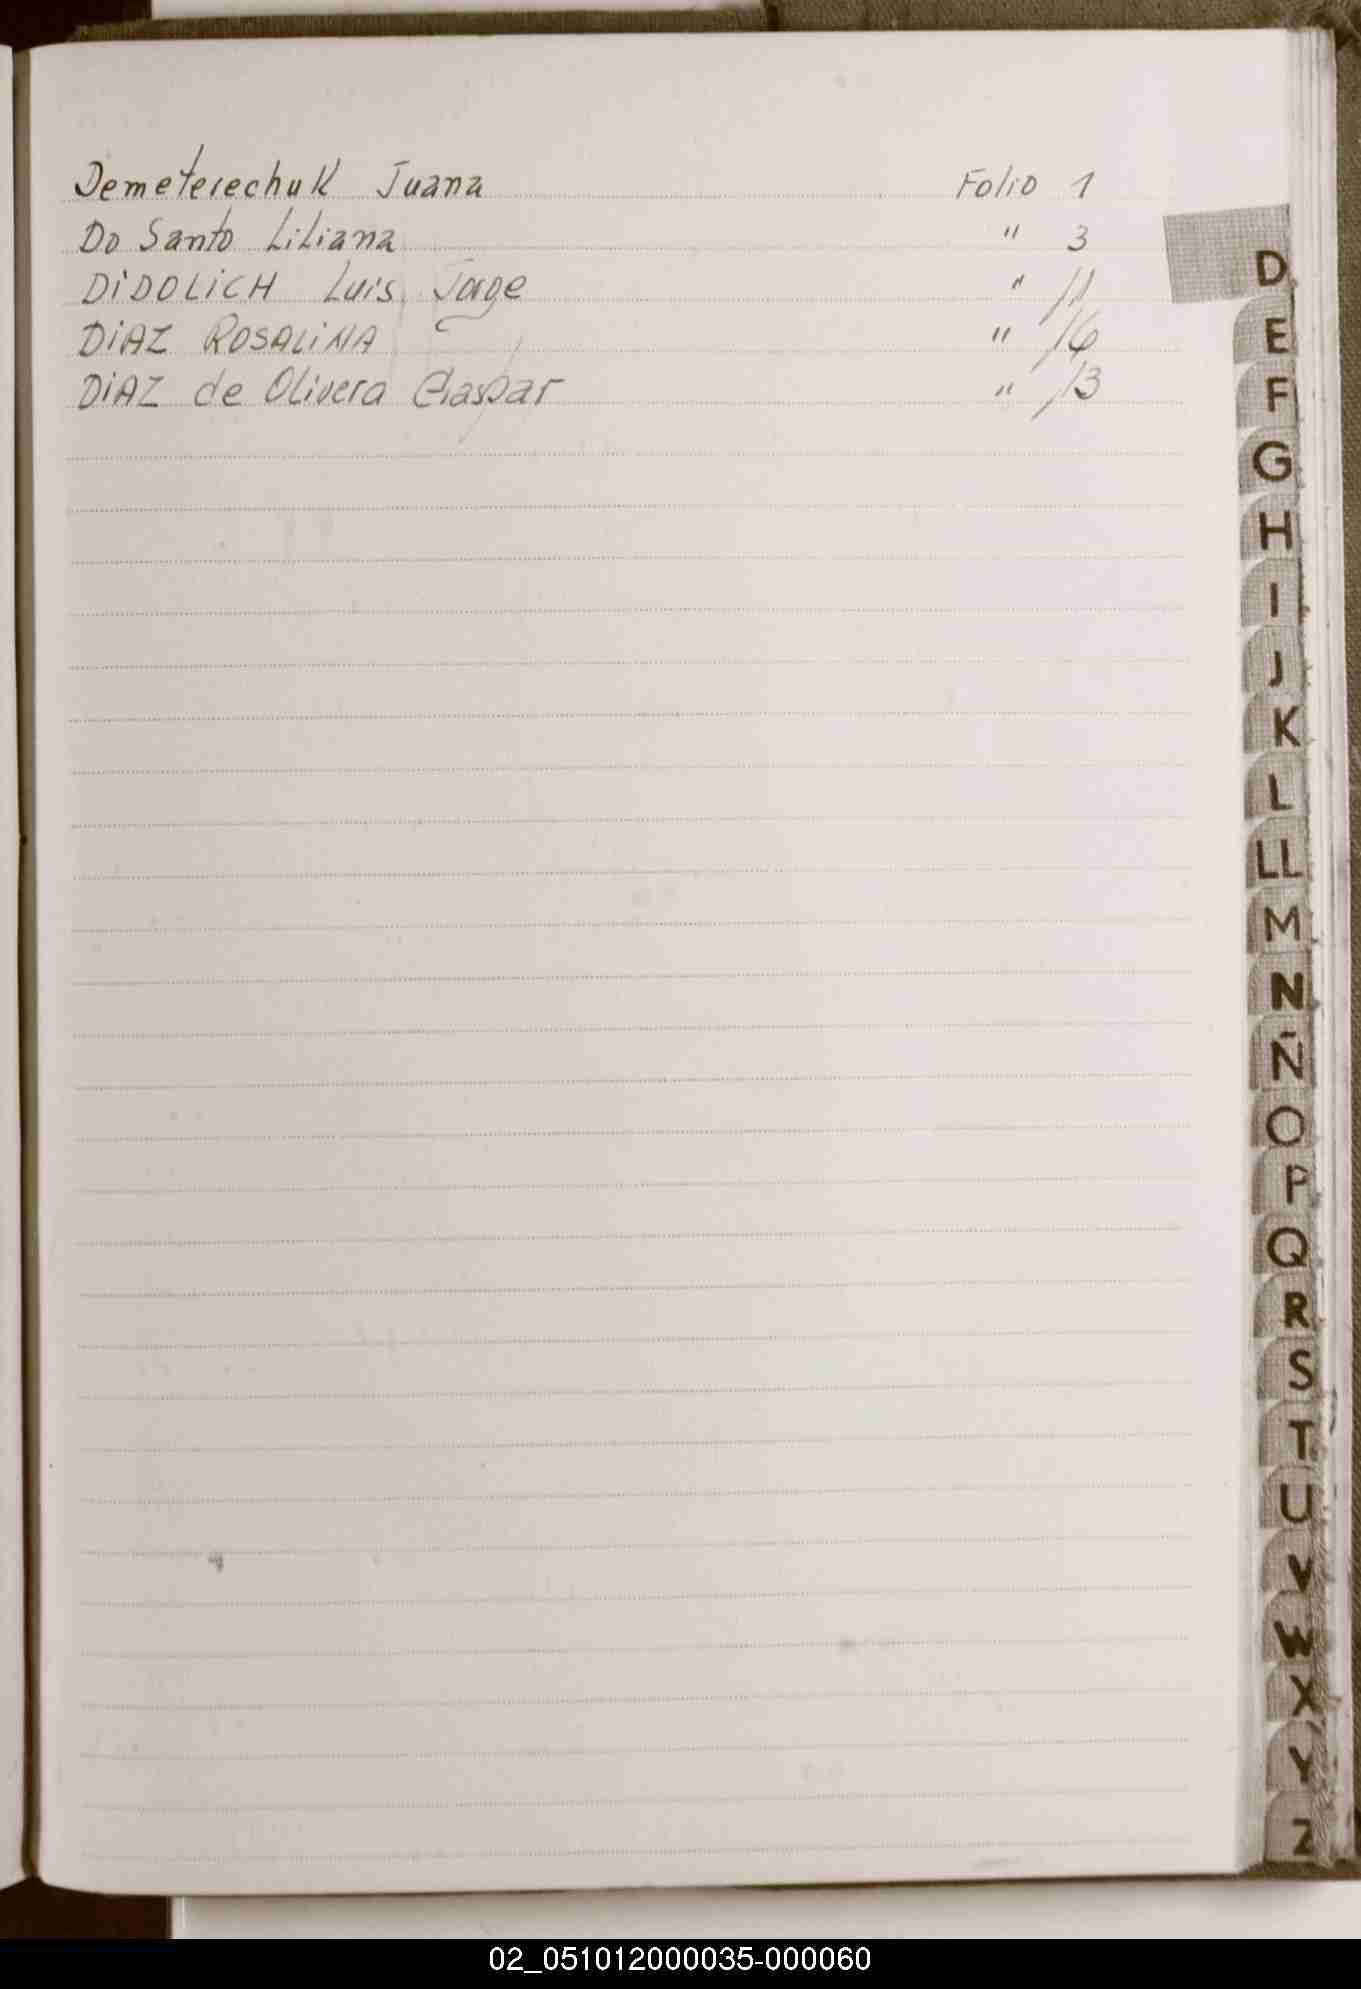 Demeterechuk Juana Folio 1
Do Santo Liliana " 3
DiDOLiCH Luis Jorge " 11
DiAZ ROSALiNA " 16
DiAZ de Olivera Gaspar " 13
D
E
F
G
H
I
J
K
L
LL
M
N
Ñ
O
P
Q
R
S
T
U
V
W
X
Y
Z
02_051012000035-000060